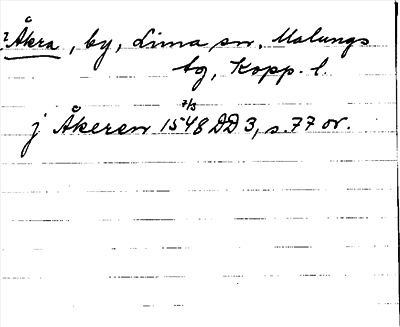 ? Åkra, by, Lima sn, Malungs
tg, Kopp. l.
7/3
j Åkeren 1548 DD 3, s. 77 or.